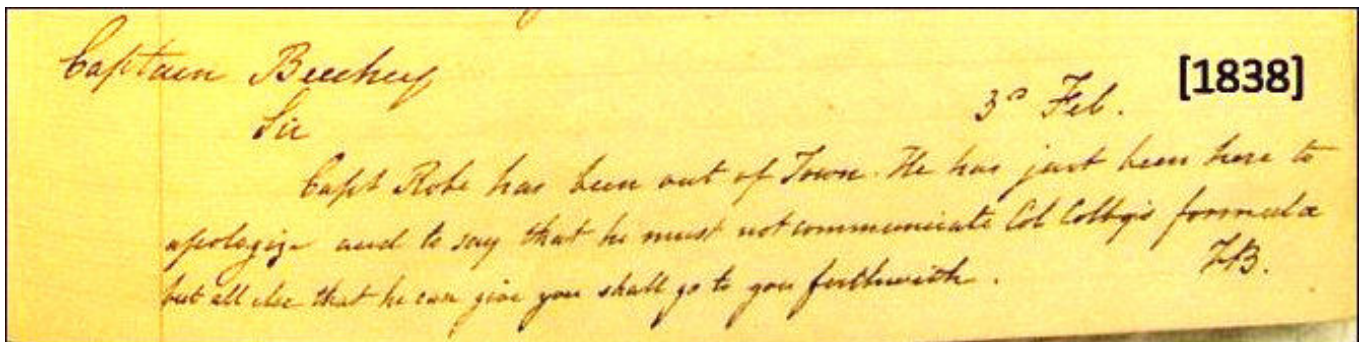 Captain Beechey
3d Feb. [1838]
Sir
Capt Robe has been out of Town. He has just been here to
apologize and to say that he must not communicate Col Colby's formula
but all else that he can give you shall go to you forthwith.
FB.